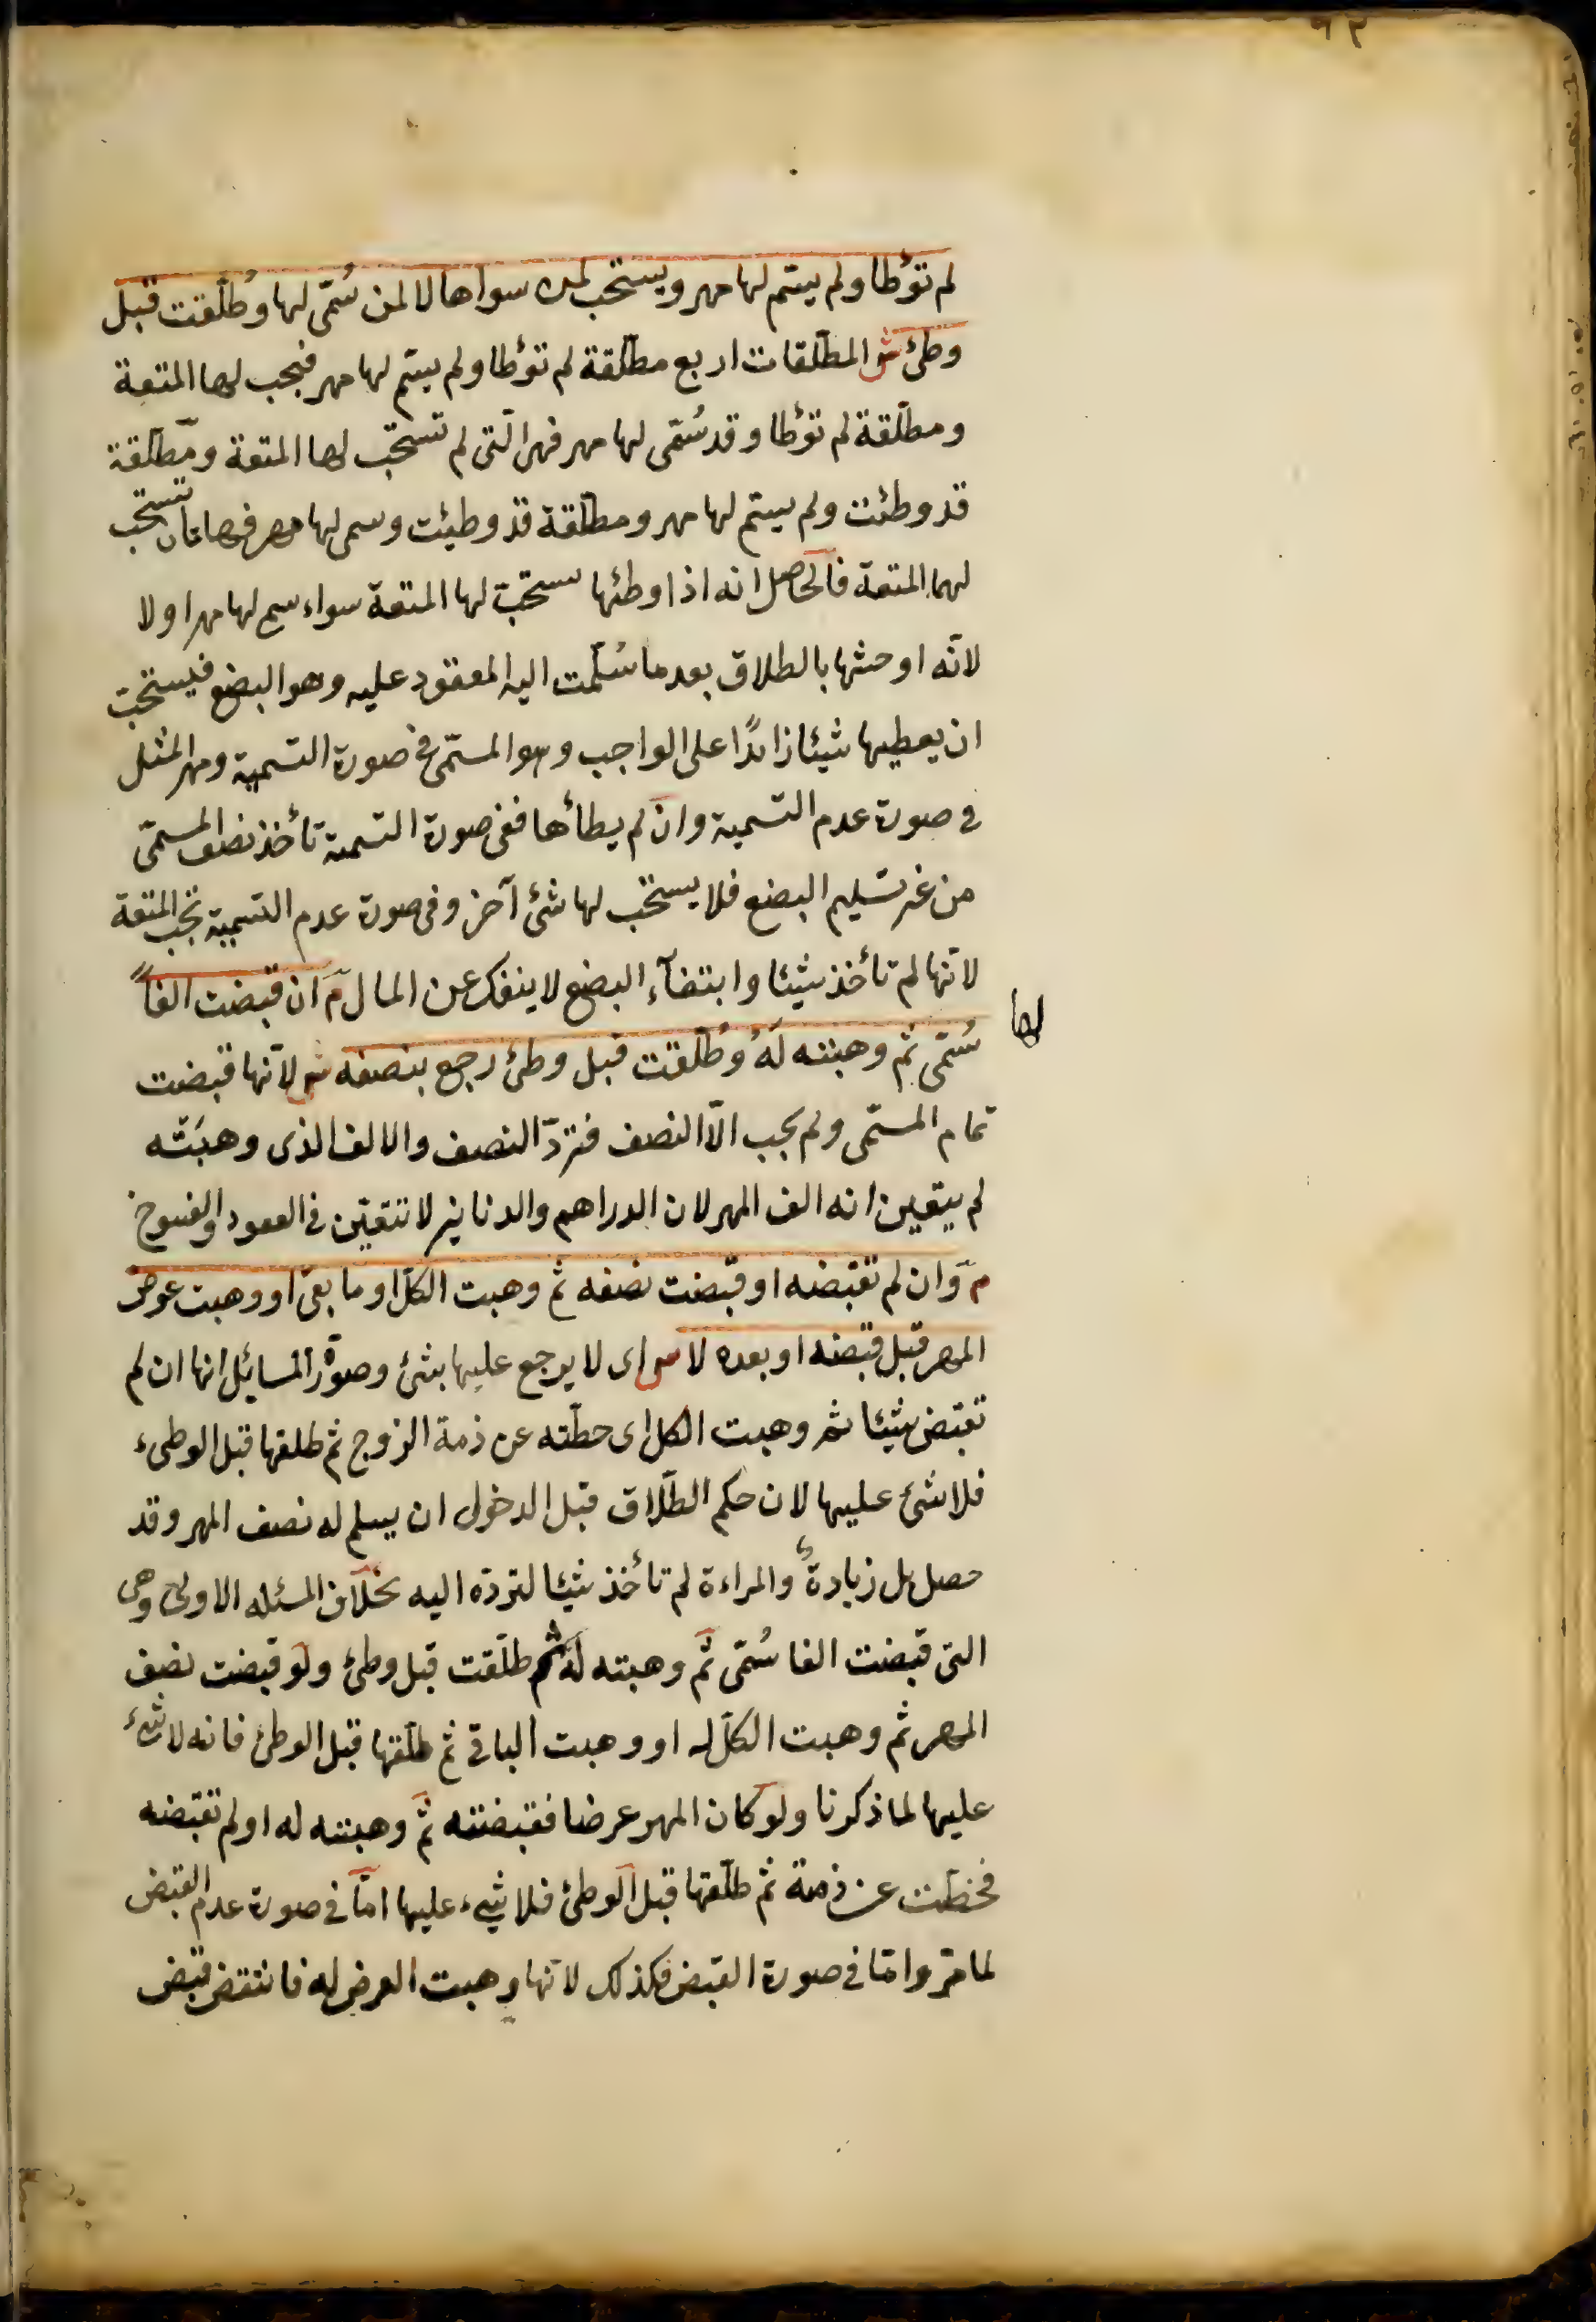 ٩٣
لم توٴطا ولم يسمّ لها مهر ويستحب لمن سواها لا لمن سُمّى لها وطُلّقت قبل
وطئ ش المطلّقات اربع مطلّقة لم توٴطا ولم يسمّ لها مهر فيجب لها المتعة
ومطلّقة لم توٴطا وقد سُمّى لها مهر فهى الّتى لم تستحّب لها المتعة ومطلّقة
قد وطئت ولم يسمّ لها مهر ومطلّقة قد وطيئت وسمى لها مهر فهاتان تستحب
لهما المتعة فالحاصل انه اذا وطئها يستحبّ لها المتعة سواء سمى لها مهرا ولا
لانّه اوحشها بالطلاق بعد ما سُلّمت اليه المعقود عليه وهو البضع فيستحبّ
ان يعطيها شيئا زائدًا على الواجب وهو المسمّى فى صورة التسمية ومهر المثل
فى صورة عدم التسمية وان لم يطأها ففى صورة التسمية تأخذ نصف المسمّى
من غير تسليم البضع فلا يستحّب لها شئ آخر وفى صورة عدم التسمية تجب المتعة
لانّها لم تأخذ شيئا وابتغآء البضع لا ينفك عن المال م ان قبضت الفاً
لها
سُمّى ثم وهبته لَهُ وطُلّقت قبل وطئ رجع بنصفه ش لانّها قبضت
تمام المسمّى ولم يجب الّا النصف فتردّ النصف والالف الذى وهبَتْه
لم يتعين انه الف المهر لان الدراهم والدنانير لا تتعيّن فى العقود والفسوخ
م وان لم تقبضه او قبضت نصفه ثم وهبت الكلّ او ما بقى او وهبت عرض
المهر قبل قبضه او بعده لا ش اى لا يرجع عليها بشئ وصورة المسائل انها ان لم
تقبض شيئا ثم وهبت الكل اى حطّته عن ذمة الزوج ثم طلقها قبل الوطىء
فلا شئ عليها لان حكم الطّلاق قبل الدخول ان يسلم له نصف المهر وقد
حصل بل زيادةٌ والمراءة لم تأخذ شيئا لتردّه اليه بخلاف المسئله الاولى وهى
التى قبضت الفا سُمّى ثم وهبته له ثم طلّقت قبل وطئ ولو قبضت نصف
المهر ثم وهبت الكلّ له او وهبت الباقى ثم طلّقها قبل الوطئ فانه لا شئ
عليها لما ذكرنا ولو كان المهر عرضا فقبضته ثم وهبته له او لم تقبضه
فحطّت عن ذمة ثم طلّقها قبل الوطئ فلا شئ عليها امّا فى صورة عدم القبض
لما مرّ وامّا فى صورة القبض فكذلك لانّها وهبت العرض له فانتقض قبض